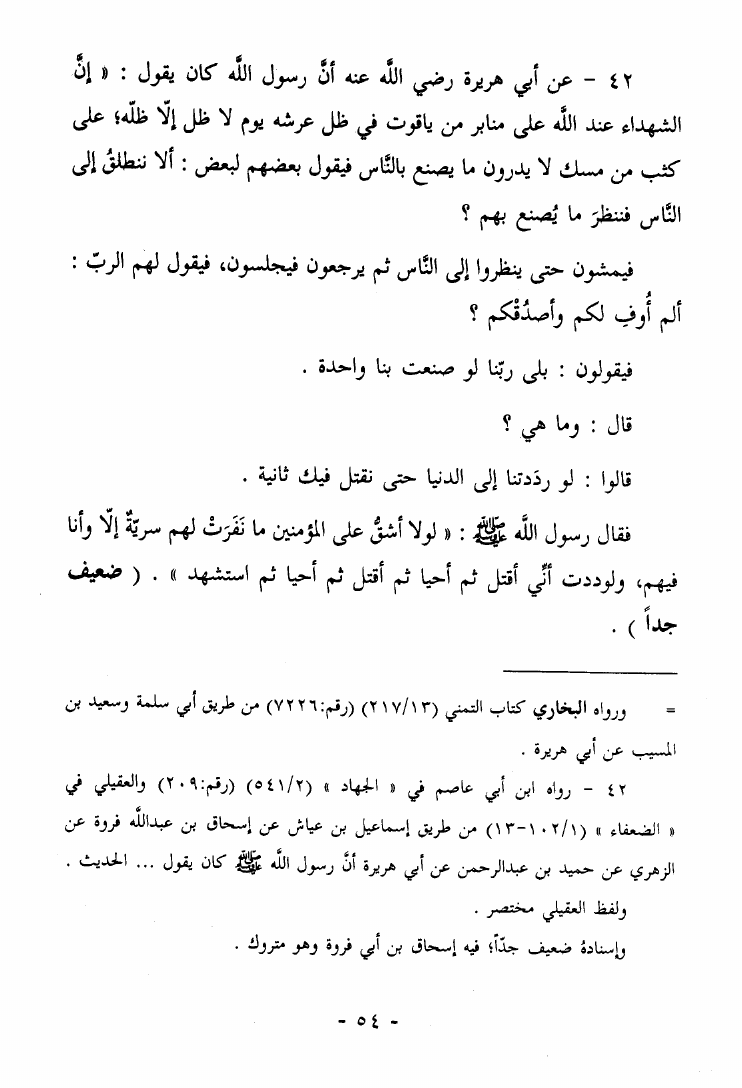 ٤٢ - عن أبي هريرة رضي اللَّه عنه أنَّ رسول اللَّه كان يقول : « إنَّ
الشهداء عند اللَّه على منابر من ياقوت في ظل عرشه يوم لا ظل إلّا ظلّه؛ على
كثب من مسك لا يدرون ما يصنع بالنَّاس فيقول بعضهم لبعض : ألا ننطلقُ إلى
النَّاس فننظرَ ما يُصنع بهم ؟
فيمشون حتى ينظروا إلى النَّاس ثم يرجعون فيجلسون، فيقول لهم الربّ :
ألم أُوفِ لكم وأصدُقْكم ؟
فيقولون : بلى ربّنا لو صنعت بنا واحدة .
قال : وما هي ؟
قالوا : لو ردَدتنا إلى الدنيا حتى نقتل فيك ثانية .
فقال رسول اللَّه ﷺ : « لولا أشقُّ على المؤمنين ما نَفَرَتْ لهم سريّةٌ إلّا وأنا
فيهم، ولوددت أنّي أقتل ثم أحيا ثم أقتل ثم أحيا ثم استشهد » . ( ضعيف
جداً ) .
= ورواه البخاري كتاب التمني (٢١٧/١٣) (رقم:٧٢٢٦) من طريق أبي سلمة وسعيد بن
المسيب عن أبي هريرة .
٤٢ - رواه ابن أبي عاصم في « الجهاد » (٥٤١/٢) (رقم:٢٠٩) والعقيلي في
« الضعفاء » (١٠٢/١-١٣) من طريق إسماعيل بن عياش عن إسحاق بن عبداللَّه فروة عن
الزهري عن حميد بن عبدالرحمن عن أبي هريرة أنَّ رسول اللَّه ﷺ كان يقول ... الحديث .
ولفظ العقيلي مختصر .
وإسنادهُ ضعيف جدّاً؛ فيه إسحاق بن أبي فروة وهو متروك .
- ٥٤ -